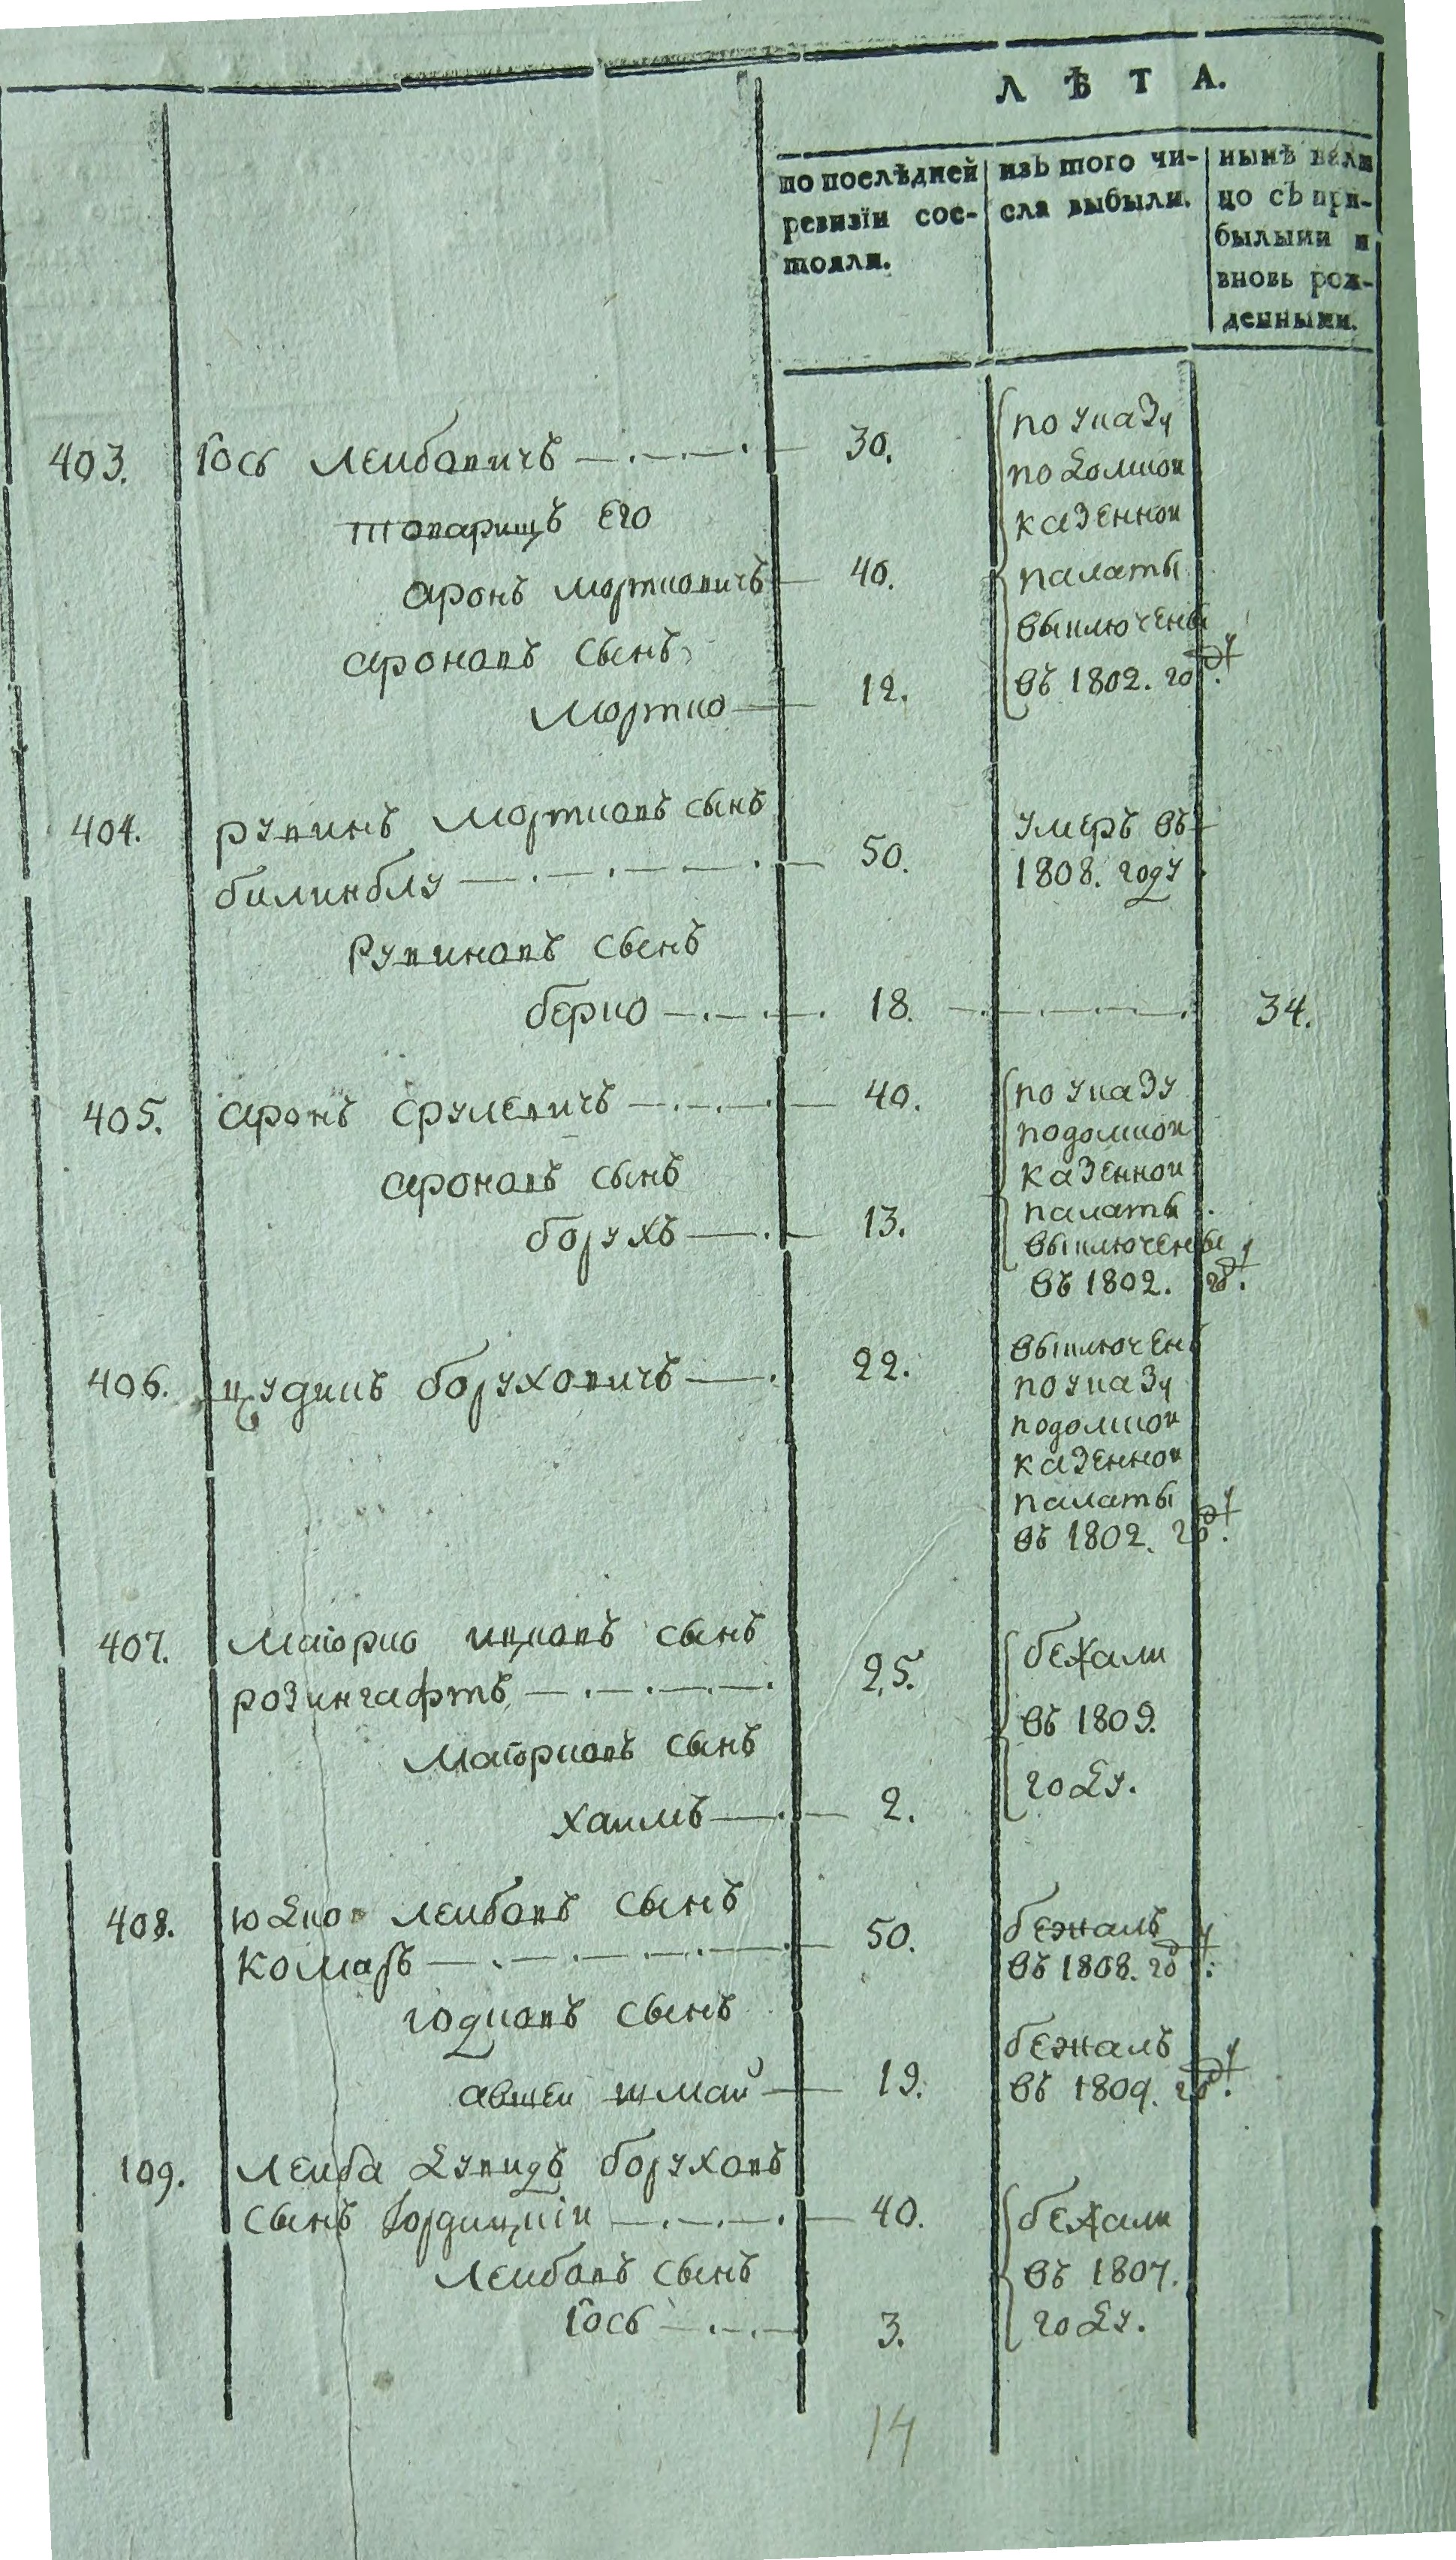 ЛѢТА.
по послѣдней
ревизїи сос-
тояли.
изЪ того чи-
сла выбыли.
нынѣ нали
цо сЪ при-
былыми и
вновь рож-
денными.
403. Іось лейбовичъ 30.
товарищъ его
аронъ мортковичъ 40.
ароновъ сынъ
мортко 12.
по указу
подолской
казенной
палаты
выключены
въ 1802. году.
404. рувинъ мортковъ сынъ
билинблу 50.
умеръ въ
1808. году
Рувиновъ сынъ
берко 18. 34.
405. аронъ срулевичъ 40.
ароновъ сынъ
борухъ 13.
по указу
подолской
казенной
палаты
выключены
въ 1802. году.
406. цудикъ боруховичъ 22.
выключенъ
по указу
подолской
казенной
палаты
въ 1802. году.
407. маіорко ицковъ сынъ
розингафтъ 25.
маіорковъ сынъ
хаимъ 2.
бежали
въ 1809.
году.
408. юдко лейбовъ сынъ
комаръ 50.
бежалъ
въ 1808. году.
юдковъ сынъ
авшеи шмай 19.
бежалъ
въ 1809. году.
109. лейба дувидъ боруховъ
сынъ 40.
лейбовъ сынъ
Іось 3.
бежали
въ 1807.
году.
14